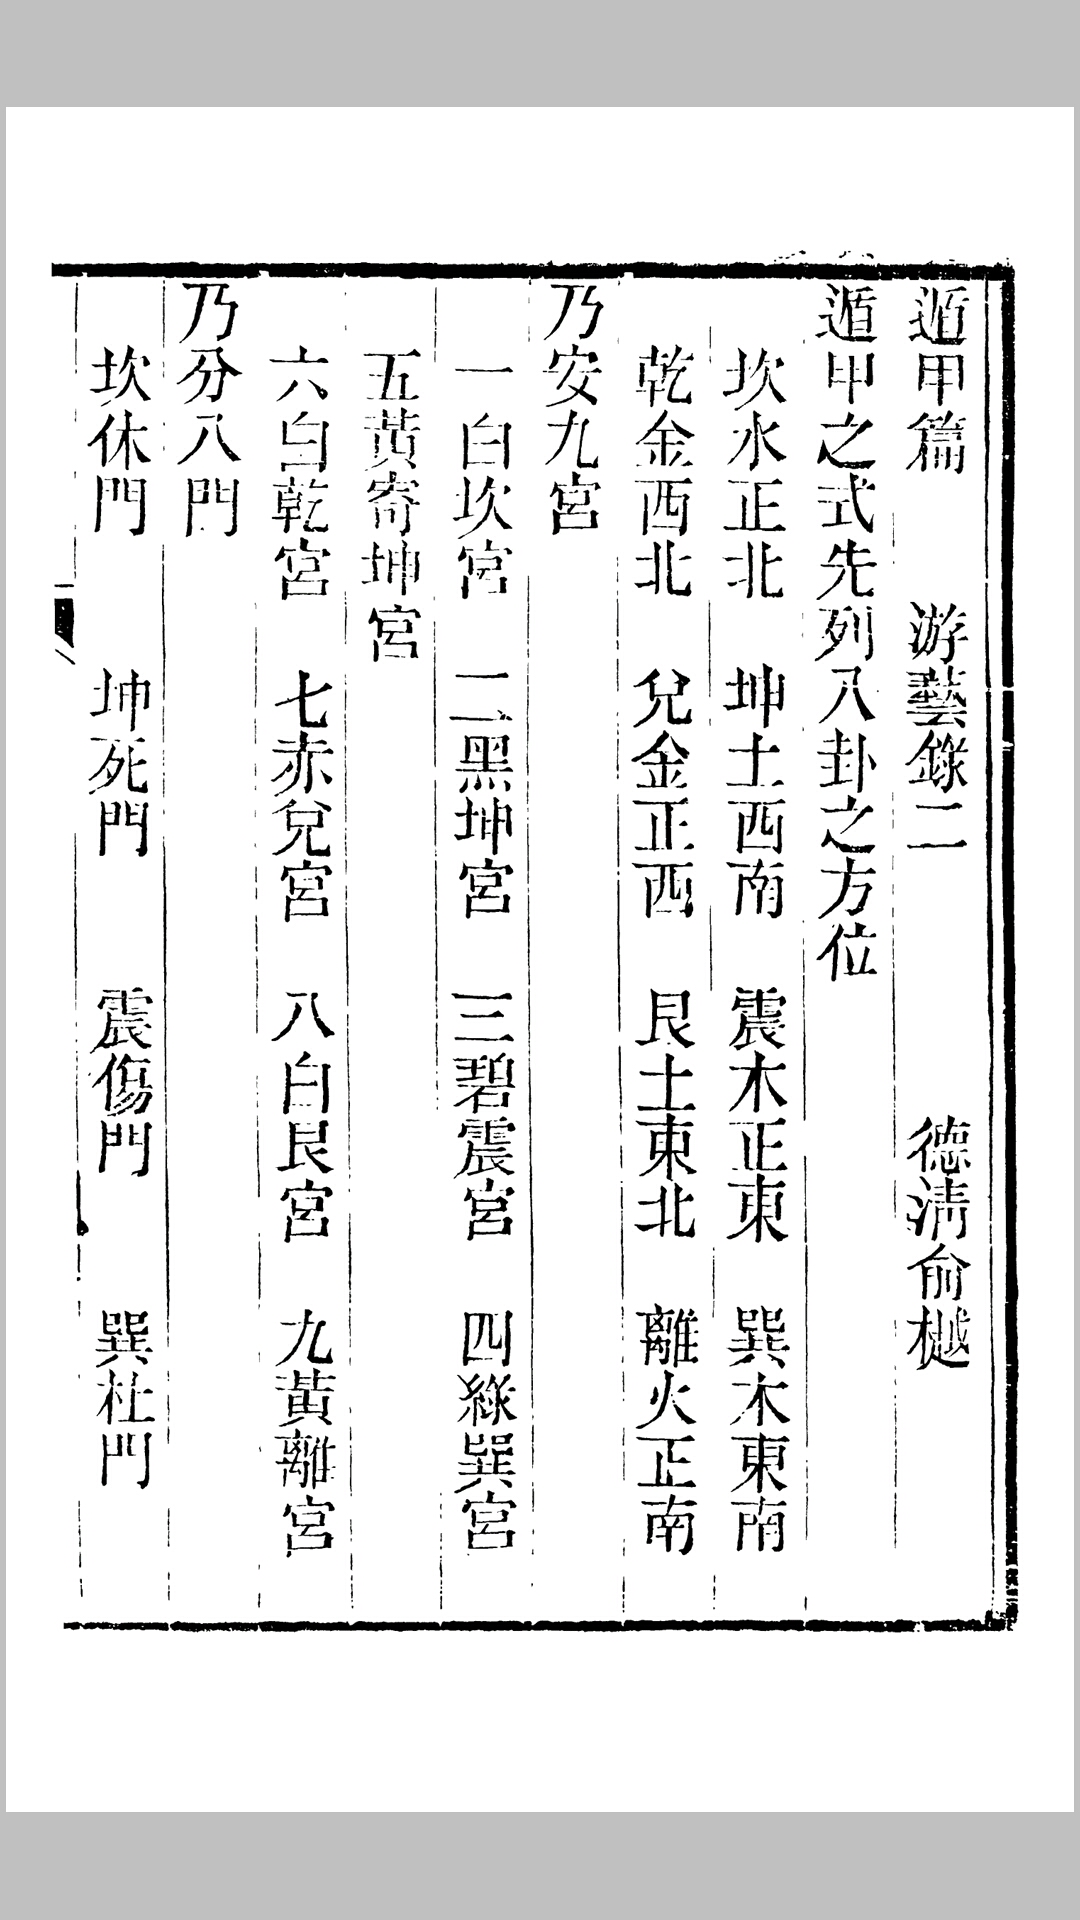 遁甲篇　游藝錄二　德淸俞樾
遁甲之式先列八卦之方位
坎水正北　坤土西南　震木正東　巽木東南
乾金西北　兌金正西　艮土東北　離火正南
乃安九宮
一白坎宮　二黑坤宮　三碧震宮　四綠巽宮
五黃寄坤宮
六白乾宮　七赤兌宮　八白艮宮　九黃離宮
乃分八門
坎休門　坤死門　震傷門　巽杜門